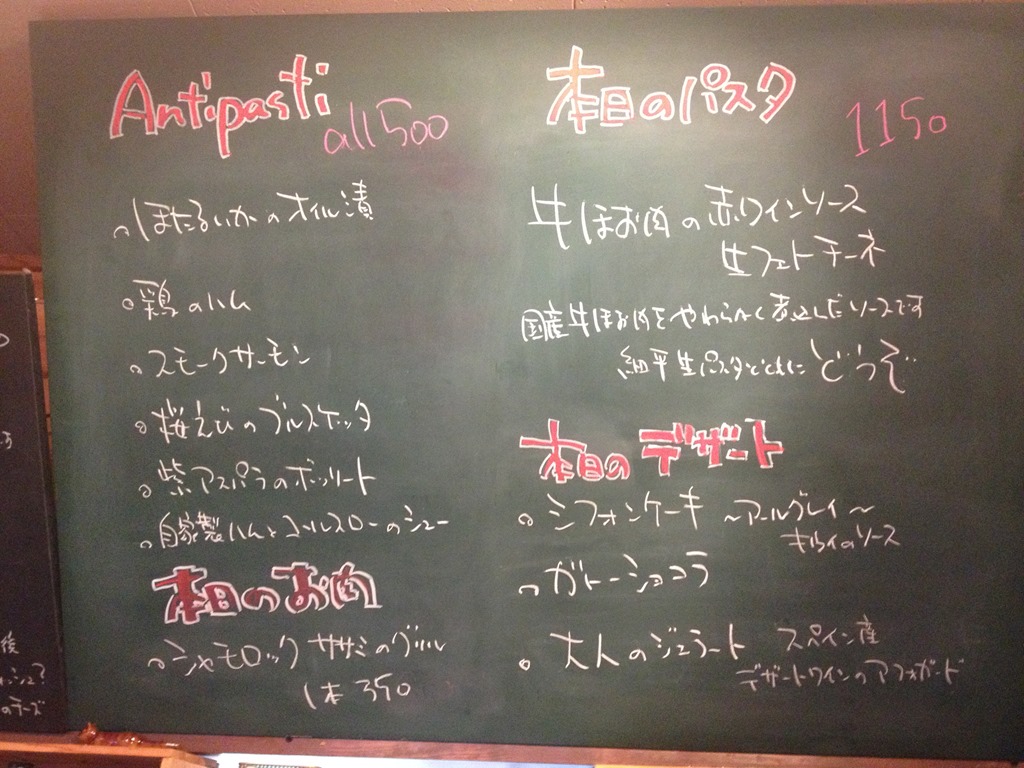 Antipasti
all 500
ほたるいかのオイル漬
鶏のハム
スモークサーモン
桜えびのブルスケッタ
紫アスパラのボッリート
自家製ハムとコールスローのシュー
本日のお肉
シャモロック ササミのグリル
1本 350
本日のパスタ
1150
牛ほお肉の赤ワインソース
生フェトチーネ
国産牛ほお肉をやわらかく煮込んだソースです
細平生パスタとともに どうぞ
本日のデザート
シフォンケーキ 〜アールグレイ〜
キウイのソース
ガトーショコラ
大人のジェラート スペイン産
デザートワインのアフォガード
後